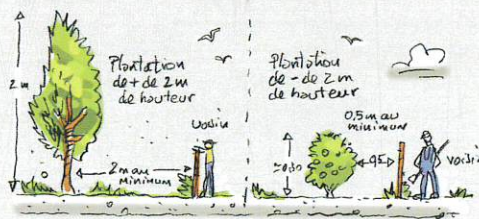 2 m
Plantation
de + de 2m
de hauteur
voisin
2m au
minimum
Plantation
de - de 2 m
de hauteur
0,5m au
minimum
voisin